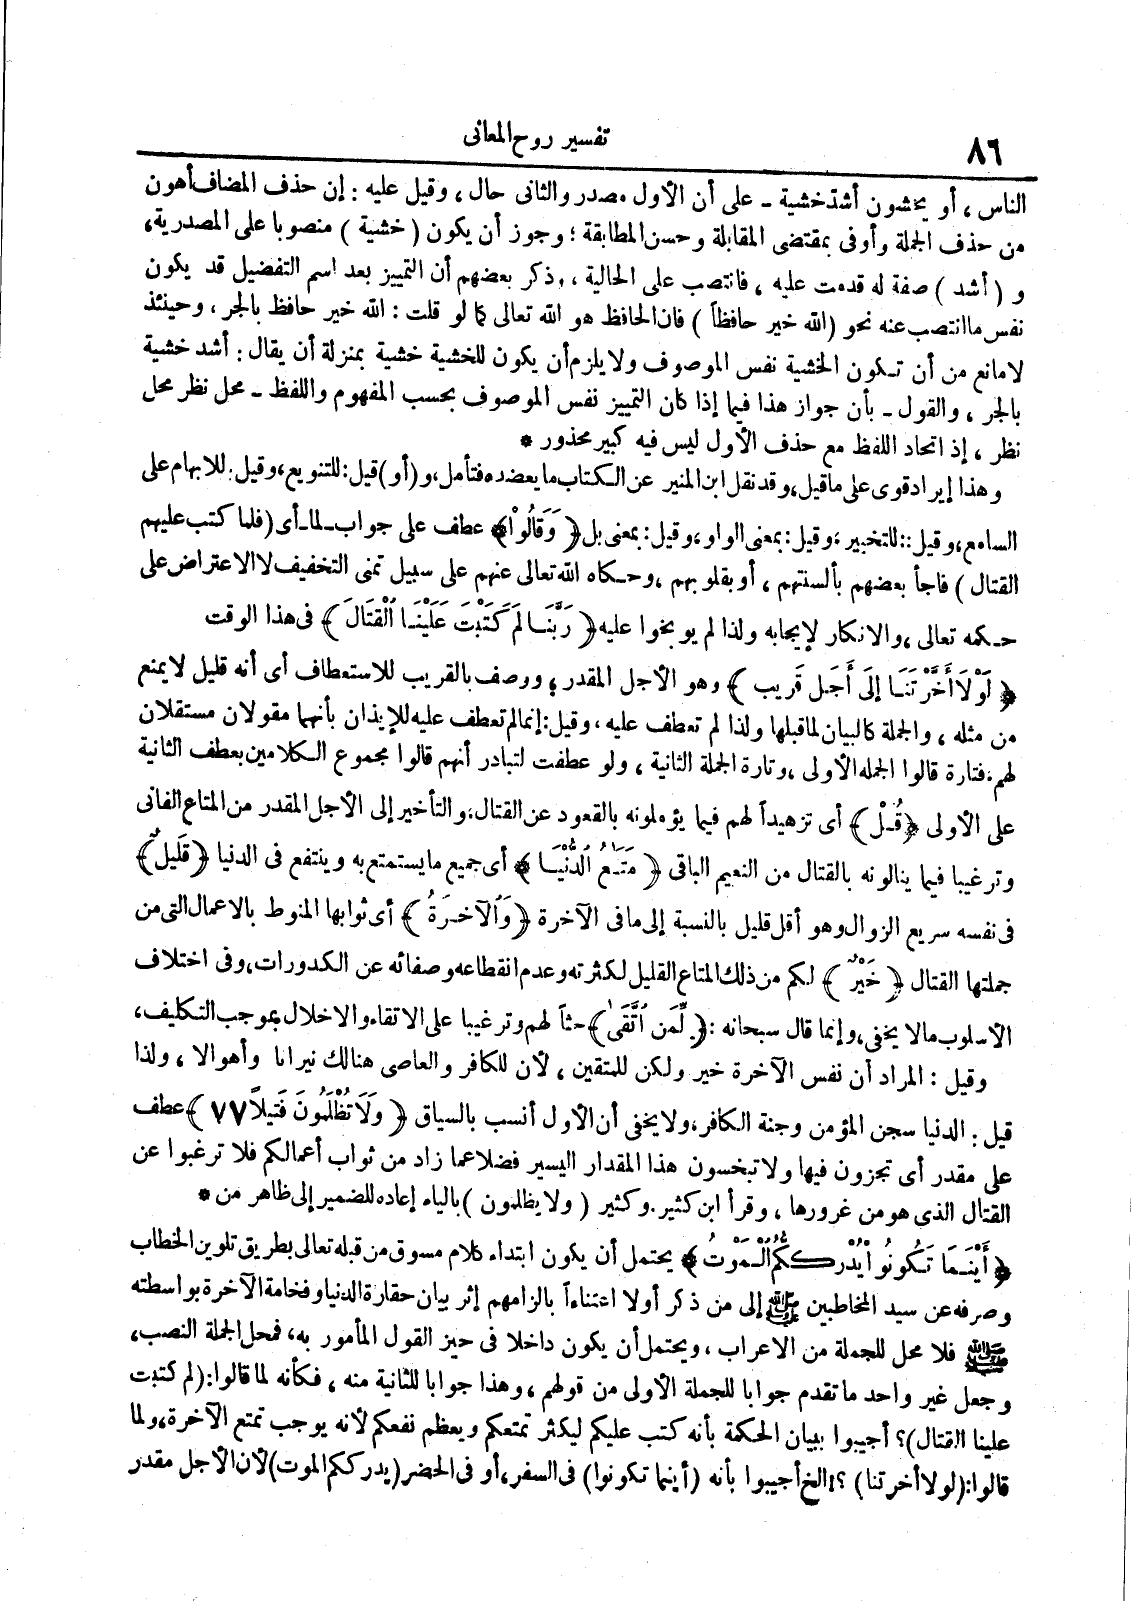 ٨٦
تفسير روح المعانى
الناس ، أو يخشون أشد خشية ـ على أن الأول مصدر والثانى حال ، وقيل عليه : إن حذف المضاف أهون
من حذف الجملة وأوفى بمقتضى المقابلة وحسن المطابقة ؛ وجوز أن يكون ( خشية ) منصوبا على المصدرية،
و ( أشد ) صفة له قدمت عليه ، فانتصب على الحالية ، وذكر بعضهم أن التمييز بعد اسم التفضيل قد يكون
نفس ماانتصب عنه نحو (الله خير حافظاً ) فان الحافظ هو الله تعالى كما لو قلت : الله خير حافظ بالجر ، وحينئذ
لامانع من أن تكون الخشية نفس الموصوف ولا يلزم أن يكون للخشية خشية بمنزلة أن يقال : أشد خشية
بالجر ، والقول ـ بأن جواز هذا فيما إذا كان التمييز نفس الموصوف بحسب المفهوم واللفظ ـ محل نظر محل
نظر ، إذ اتحاد اللفظ مع حذف الأول ليس فيه كبير محذور *
وهذا إيراد قوى على ماقيل، وقد نقل ابن المنير عن الكتاب ما يعضده فتأمل، و (أو) قيل: للتنويع، وقيل: للابهام على
السامع، وقيل :: للتخيير ، وقيل: بمعنى الواو، وقيل: بمعنى بل ﴿ وَقَالُواْ﴾ عطف على جواب ـ لما ـ أى (فلما كتب عليهم
القتال ) فاجأ بعضهم بألسنتهم ، أو بقلوبهم ، وحكاه الله تعالى عنهم على سبيل تمنى التخفيف لا الاعتراض على
حكمه تعالى ، والانكار لإيجابه ولذا لم يوبخوا عليه ﴿ رَبَّنَا لِمَ كَتَبْتَ عَلَيْنَا ٱلْقِتَالَ ﴾ فى هذا الوقت
﴿ لَوْلَا أَخَّرْتَنَا إِلَى أَجَل قَريب ﴾ وهو الأجل المقدر ؛ ووصف بالقريب للاستعطاف أى أنه قليل لا يمنع
من مثله ، والجملة كالبيان لما قبلها ولذا لم تعطف عليه ، وقيل: إنما لم تعطف عليه للإيذان بأنهما مقولان مستقلان
لهم، فتارة قالوا الجمله الأولى ، وتارة الجملة الثانية ، ولو عطفت لتبادر أنهم قالوا مجموع الكلامين بعطف الثانية
على الأولى ﴿قُلْ ﴾ أى تزهيداً لهم فيما يؤملونه بالقعود عن القتال، والتأخير إلى الأجل المقدر من المتاع الفانى
وترغيبا فيما ينالونه بالقتال من النعيم الباقى ﴿ مَتَاعُ الدُّنْيَا ﴾ أى جميع ما يستمتع به وينتفع فى الدنيا ﴿قَليلٌ﴾
فى نفسه سريع الزوال وهو أقل قليل بالنسبة إلى مافى الآخرة ﴿وَٱلآخرَةُ ﴾ أى ثوابها المنوط بالاعمال التى من
جملتها القتال ﴿ خَيْرٌ ﴾ لكم من ذلك المتاع القليل لكثرته وعدم انقطاعه وصفائه عن الكدورات، وفى اختلاف
الأسلوب مالا يخفى، وإنما قال سبحانه : ﴿لِّمَن ٱتَّقَىٰ﴾ حثاً لهم وترغيبا على الاتقاء والاخلال بموجب التكليف،
وقيل : المراد أن نفس الآخرة خير ولكن للمتقين ، لأن للكافر والعاصى هنالك نيرانا وأهوالا ، ولذا
قيل : الدنيا سجن المؤمن وجنة الكافر، ولا يخفى أن الأول أنسب بالسياق ﴿ وَلَا تُظْلَمُونَ فَتيلًا ٧٧ ﴾ عطف
على مقدر أى تجزون فيها ولا تبخسون هذا المقدار اليسير فضلا عما زاد من ثواب أعمالكم فلا ترغبوا عن
القتال الذى هو من غرورها ، وقرأ ابن كثير. وكثير ( ولا يظلمون ) بالياء إعاده للضمير إلى ظاهر من *
﴿ أَيْنَمَا تَكُونُوا يُدْرككُّمُ الْمَوْتُ ﴾ يحتمل أن يكون ابتداء كلام مسوق من قبله تعالى بطريق تلوين الخطاب
وصرفه عن سيد المخاطبين ﷺ إلى من ذكر أولا اعتناءاً بالزامهم إثر بيان حقارة الدنيا وفخامة الآخرة بواسطته
ﷺ فلا محل للجملة من الاعراب ، ويحتمل أن يكون داخلا فى حيز القول المأمور به، فمحل الجملة النصب،
وجعل غير واحد ما تقدم جوابا للجملة الأولى من قولهم ، وهذا جوابا للثانية منه ، فكأنه لما قالوا: (لم كتبت
علينا القتال)؟ أجيبوا ببيان الحكمة بأنه كتب عليكم ليكثر تمتعكم ويعظم نفعكم لأنه يوجب تمتع الآخرة، ولما
قالوا: (لولا أخرتنا) ؟! الخ أجيبوا بأنه (أينما تكونوا) فى السفر، أو فى الحضر (يدرككم الموت) لأن الأجل مقدر